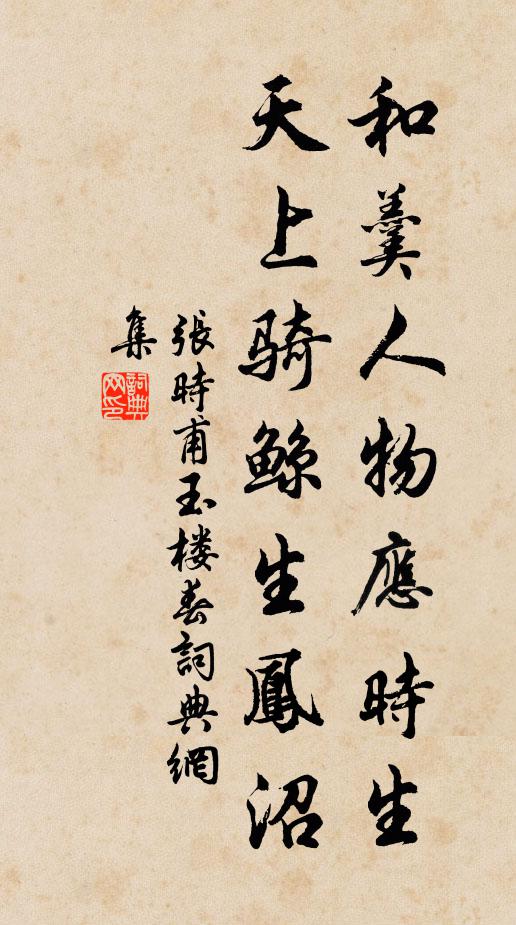 和羹人物應時生
天上騎鯨生鳳沼
張時甫玉樓春詞典網
集
詞典
网印